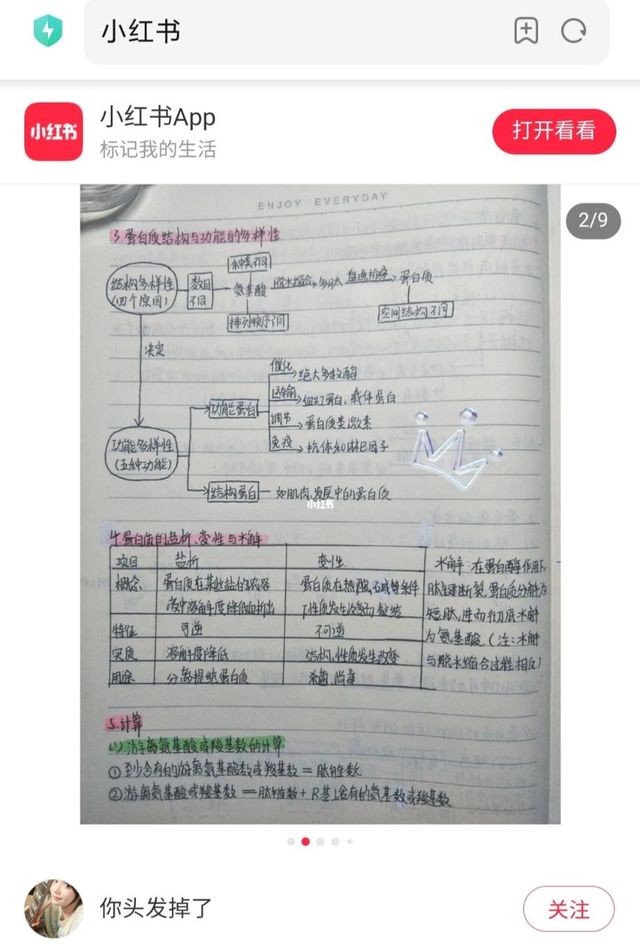 小红书
小红书
小红书App
标记我的生活
打开看看
2/9
ENJOY EVERYDAY
3.蛋白质结构与功能的多样性
种类不同
结构多样性
(四个原因)
数目
不同
氨基酸 脱水缩合 多肽 盘曲折叠 蛋白质
排列顺序不同
空间结构不同
决定
催化
绝大多数酶
运输
血红蛋白,载体蛋白
功能蛋白
调节
蛋白质类激素
免疫
抗体和淋巴因子
功能多样性
(五种功能)
结构蛋白 — 如肌肉,发尾中的蛋白质
小红书
4.蛋白质的盐析、变性与水解
项目 盐析 变性
概念 蛋白质在某些盐的浓溶
液中溶解度降低而析出
蛋白质在热酸、碱等条件
下性质发生改变而凝结
特征 可逆 不可逆
实质 溶解度降低 结构、性质发生改变
用途 分离提纯蛋白质 杀菌,消毒
水解: 在蛋白酶作用下
肽键断裂,蛋白质分解为
短肽,进而彻底水解
为氨基酸(注:水解
与脱水缩合过程相反)
5.计算
(1)游离氨基酸或羧基数的计算
①至少含有的游离氨基酸数或羧基数=肽链数
②游离氨基酸或羧基数=肽链数+R基上含有的氨基数或羧基数
你头发掉了
关注